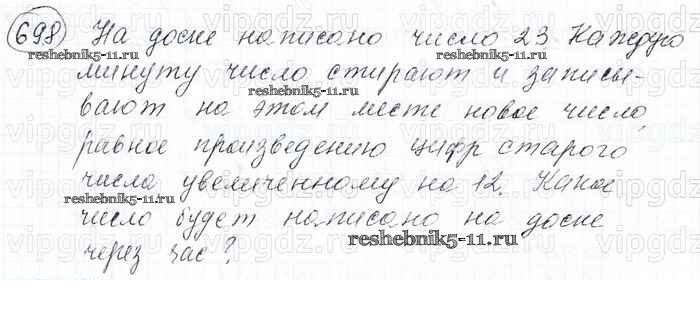 698 На доске написано число 23 Каждую
минуту число стирают и записы-
вают на этом месте новое число,
равное произведению цифр старого
числа увеличенному на 12. Какое
число будет написано на доске
через час?
reshebnik5-11.ru
reshebnik5-11.ru
reshebnik5-11.ru
reshebnik5-11.ru
reshebnik5-11.ru